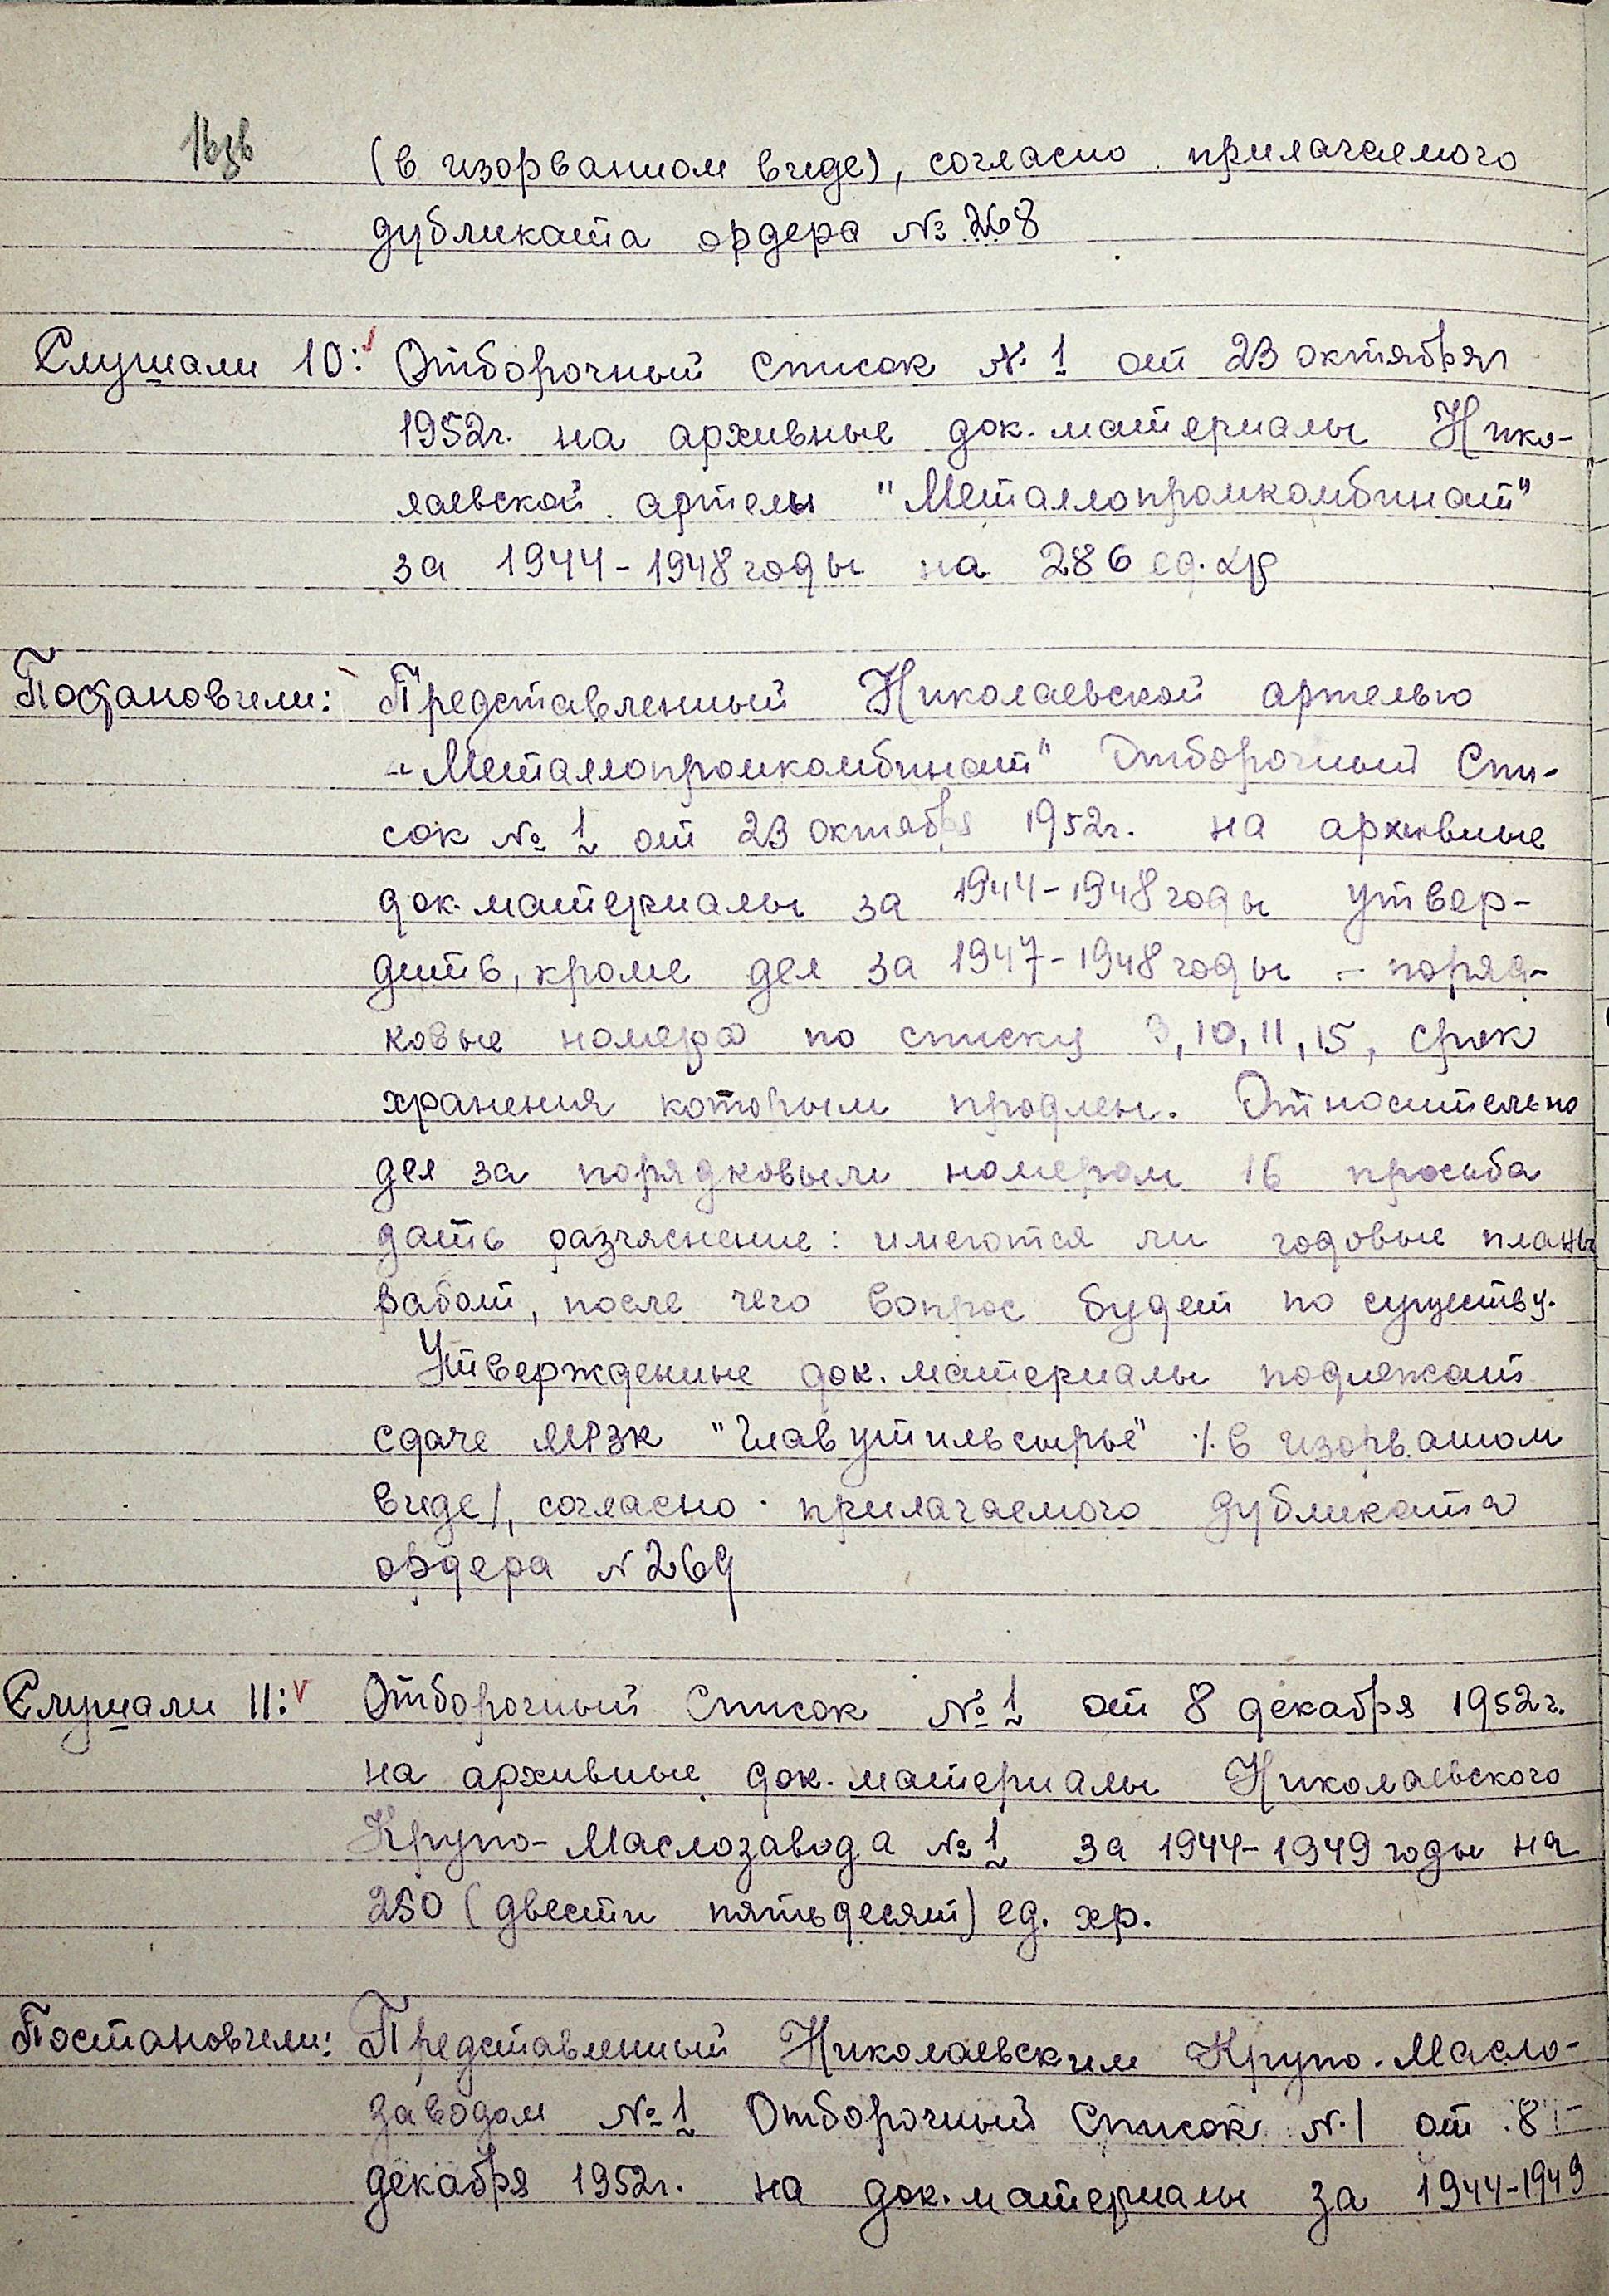 (в изорванном виде), согласно прилагаемого
дубликата ордера № 268
Слушали 10: Отборочный список № 1 от 23 октября
1952г. на архивные док. материалы Нико-
лаевской артели "Металлопромкомбинат"
за 1944-1948 годы на 286 ед. хр
Постановили: Представленный Николаевской артелью
"Металлопромкомбинат" Отборочный Спи-
сок № 1 от 23 октября 1952г. на архивные
док. материалы за 1944-1948 годы утвер-
дить, кроме дел за 1947-1948 годы - поряд-
ковые номера по списку 3, 10, 11, 15, срок
хранения которым продлен. Относительно
дел за порядковым номером 16 просьба
дать разъяснение: имеются ли годовые планы
работ, после чего вопрос будет по существу.
Утвержденные док. материалы подлежат
сдаче МРЗК "Главутильсырье" /в изорваном
виде/, согласно прилагаемого дубликата
ордера № 269
Слушали 11: Отборочный Список № 1 от 8 декабря 1952г.
на архивные док. материалы Николаевского
Крупо-Маслозавода № 1 за 1944-1949 годы на
250 (двести пятьдесят) ед. хр.
Постановили: Представленный Николаевским Крупо-Масло-
заводом № 1 Отборочный Список № 1 от 8
декабря 1952г. на док. материалы за 1944-1949